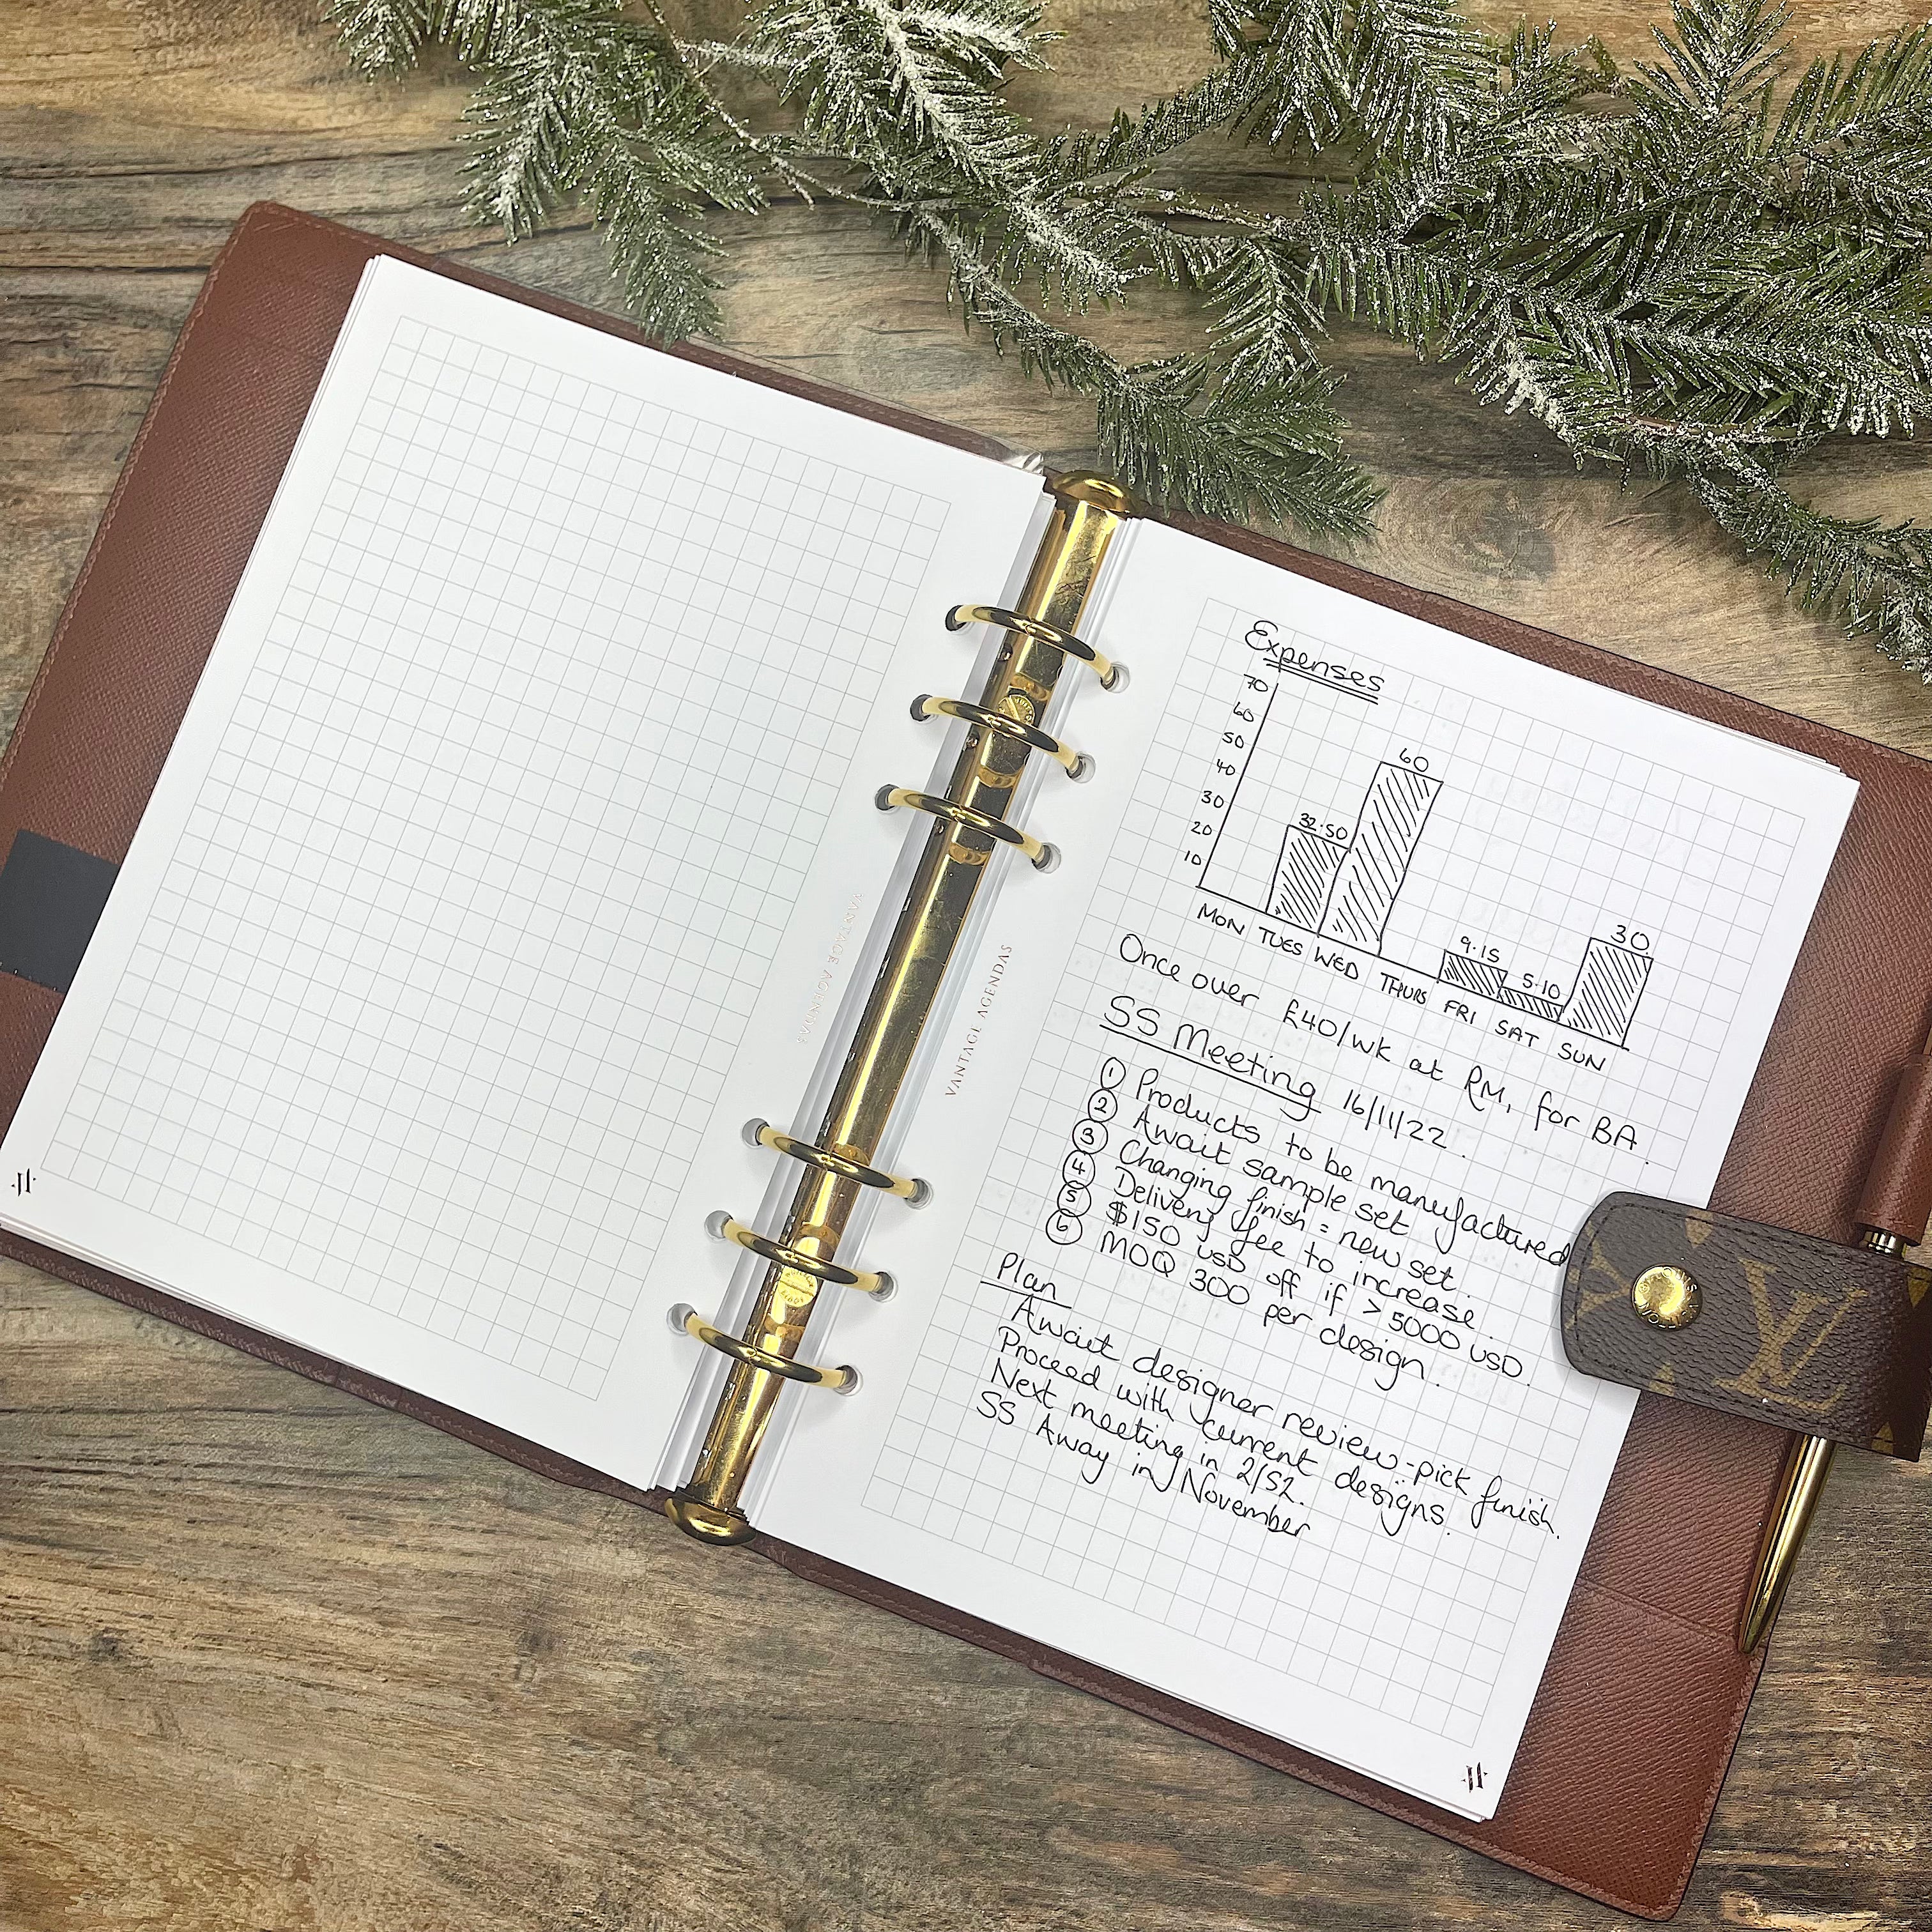 VANTAGE AGENDAS
VANTAGE AGENDAS
Expenses
70
60
50
40
30
20
10
32.50
60
9.15
5.10
30
MON TUES WED THURS FRI SAT SUN
Once over £40/wk at RM, for BA.
SS Meeting 16/11/22.
① Products to be manufactured
② Await sample set
③ Changing finish = new set.
④ Delivery fee to increase.
⑤ $150 USD off if > 5000 USD.
⑥ MOQ 300 per design.
Plan
Await designer review - pick finish.
Proceed with current designs.
Next meeting in 2/52.
SS Away in November
LV